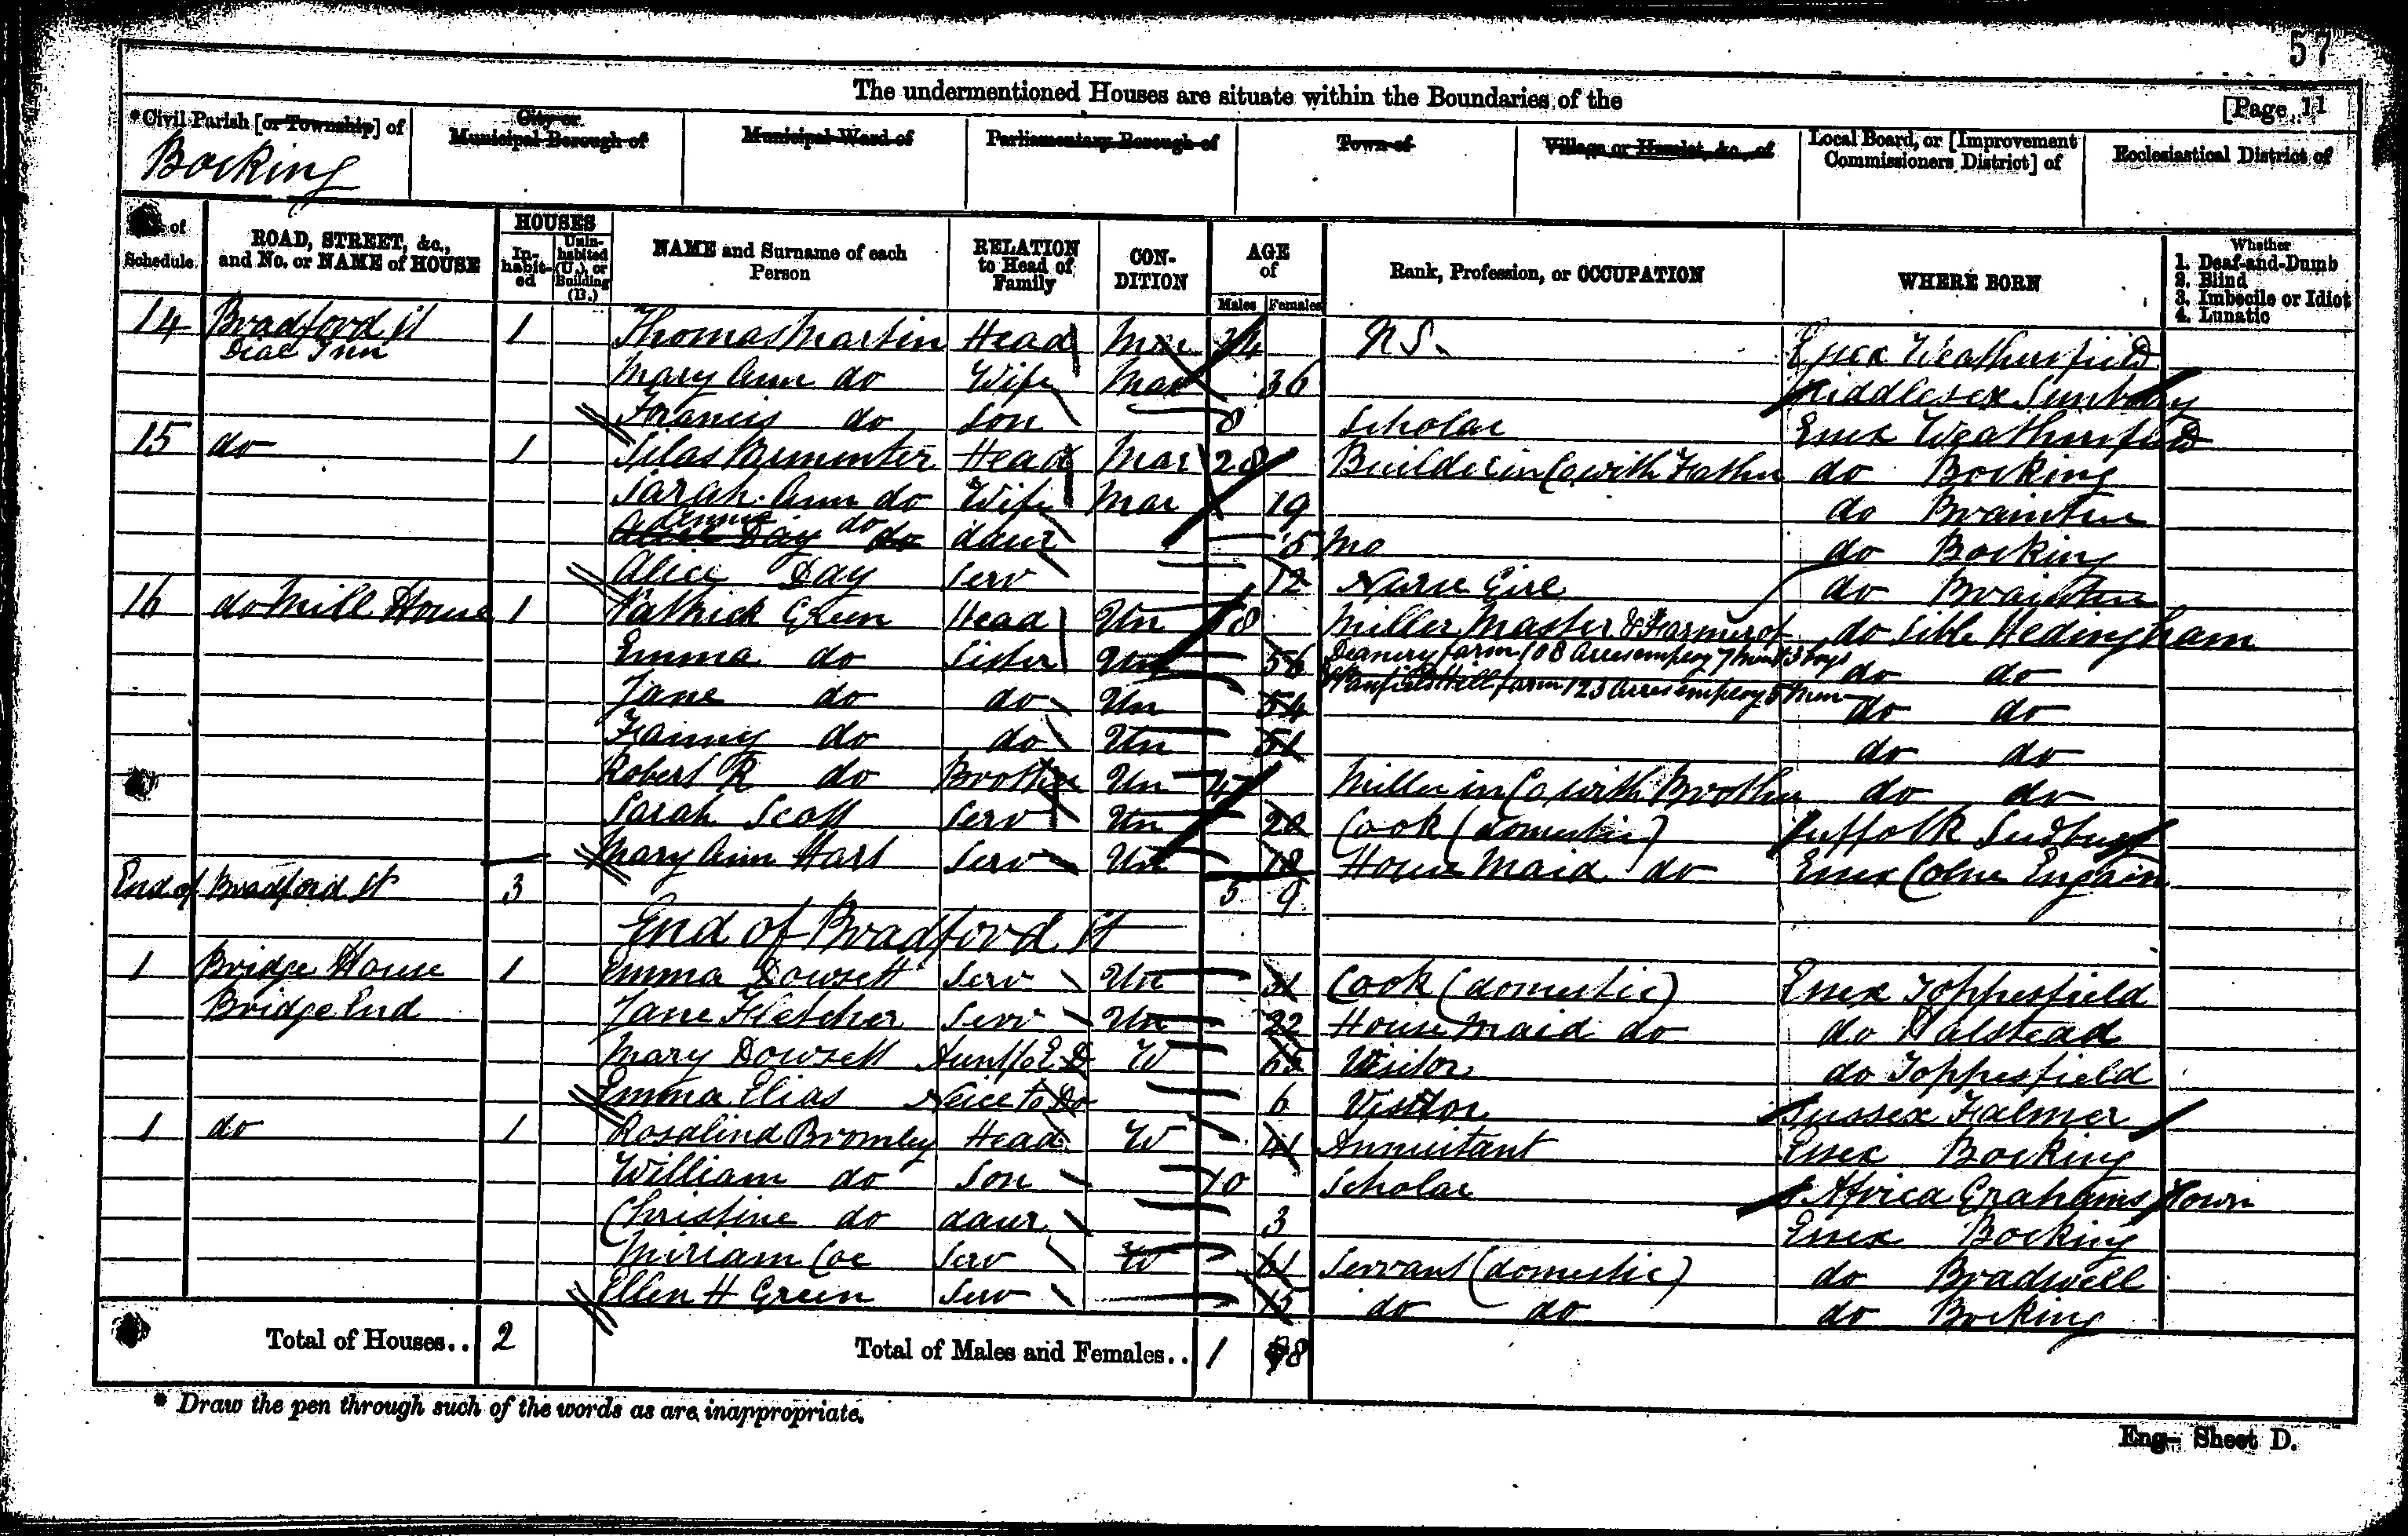 57
The undermentioned Houses are situate within the Boundaries of the
[Page 11
*Civil Parish [or Township] of
City or Municipal Borough of
Municipal Ward of
Parliamentary Borough of
Town of
Village or Hamlet, &c., of
Local Board, or [Improvement Commissioners District] of
Ecclesiastical District of
Bocking
of Schedule
ROAD, STREET, &c., and No. or NAME of HOUSE
HOUSES
In-habit-ed
Unin-habited (U.), or Building (B.)
NAME and Surname of each Person
RELATION to Head of Family
CON-DITION
AGE of
Males Females
Rank, Profession, or OCCUPATION
WHERE BORN
Whether
1. Deaf-and-Dumb
2. Blind
3. Imbecile or Idiot
4. Lunatic
14 Bradford St 1 Thomas Martin Head Mar 34 N.S. Essex Weathersfield
Inn Mary Ann do Wife Mar 36 Middlesex Sunbury
Francis do Son 8 Scholar Essex Weathersfield
15 do 1 Silas Head Mar 28 Builder in Co with Father do Bocking
Sarah Ann do Wife Mar 19 do Braintree
do daur 5 Mo do Bocking
Alice Day Serv 12 Nurse Girl do Braintree
16 do Mill House 1 Patrick Green Head Un 58 Miller Master & Farmer of do Sible Hedingham
Emma do Sister Un 56 Deanery Farm 108 Acres employ 7 Men & 3 boys do do
Jane do do Un 54 Hill Farm 125 Acres employ 5 Men do do
Fanny do do Un 51 do do
Robert R do Brother Un 47 Miller in Co with Brother do do
Sarah Scott Serv Un 20 Cook (domestic) Suffolk Sudbury
Mary Ann Hart Serv Un 18 House Maid do Essex Colne Engain
End of Bradford St 3 5 9
End of Bradford St
1 Bridge House 1 Emma Dowsett Serv Un 31 Cook (domestic) Essex Toppesfield
Bridge End Jane Fletcher Serv Un 22 House Maid do do Halstead
Mary Dowsett Aunt to E D W 65 Visitor do Toppesfield
Emma Elias Neice to Do 6 Visitor Sussex Falmer
1 do 1 Rosalind Bromley Head W 41 Annuitant Essex Bocking
William do Son 10 Scholar S. Africa Grahams Town
Christine do daur 3 Essex Bocking
Miriam Coe Serv W 61 Servant (domestic) do Bradwell
Ellen H Green Serv 15 do do do Bocking
Total of Houses.. 2
Total of Males and Females.. 1 8
* Draw the pen through such of the words as are inappropriate.
Eng— Sheet D.